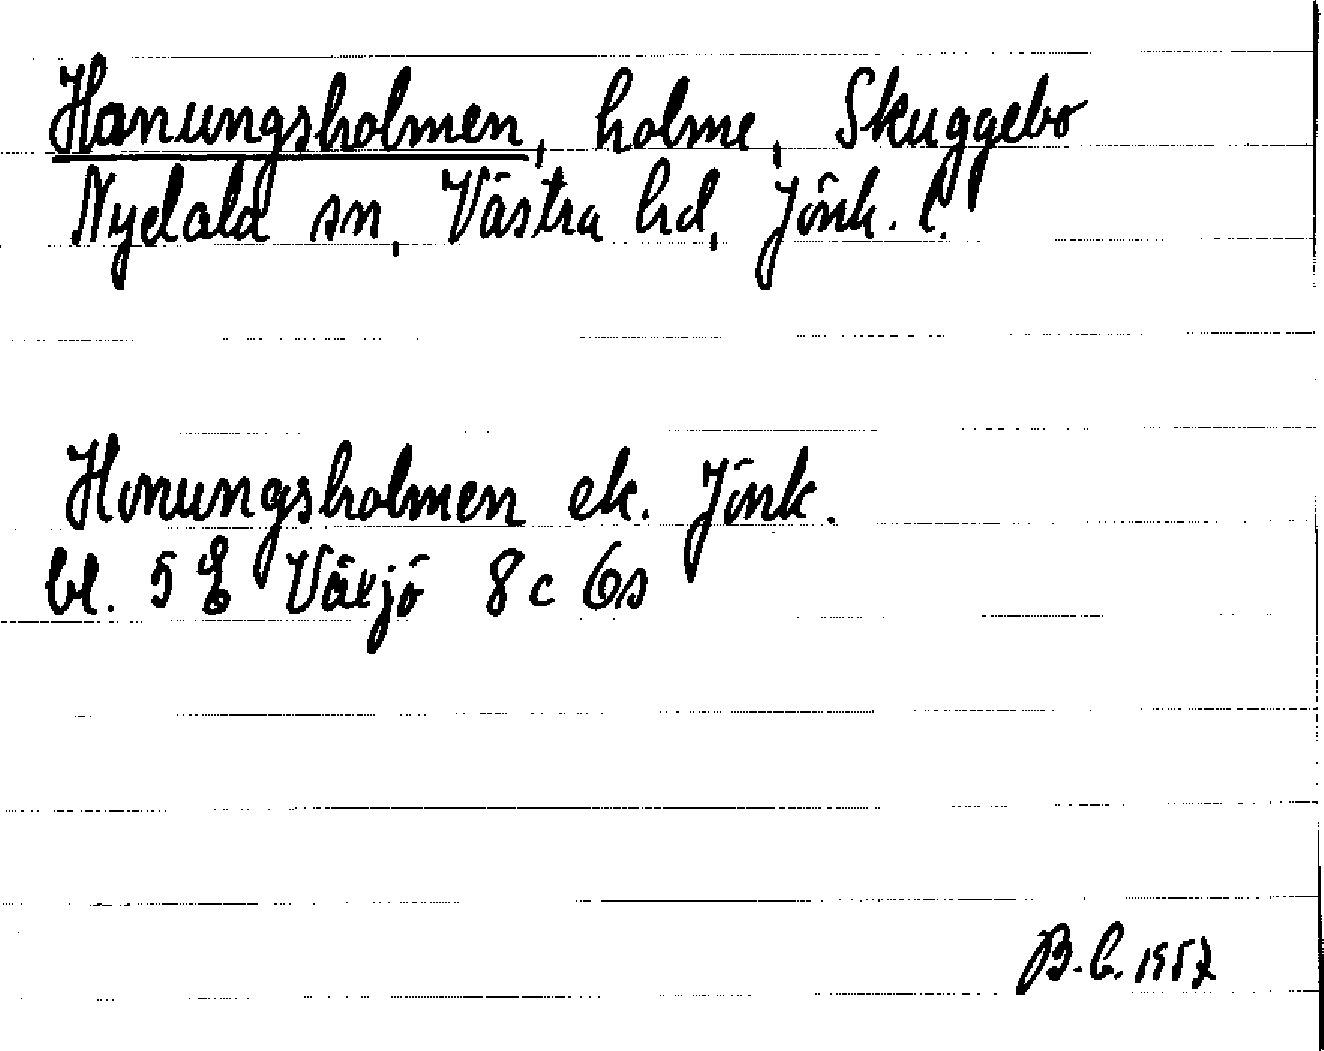 Hanungsholmen, holme, Skuggebo
Nydala sn, Västra hd, Jönk. l.
Honungsholmen ek. Jönk.
bl. 5 E Växjö 8c 6s
B.L. 1957